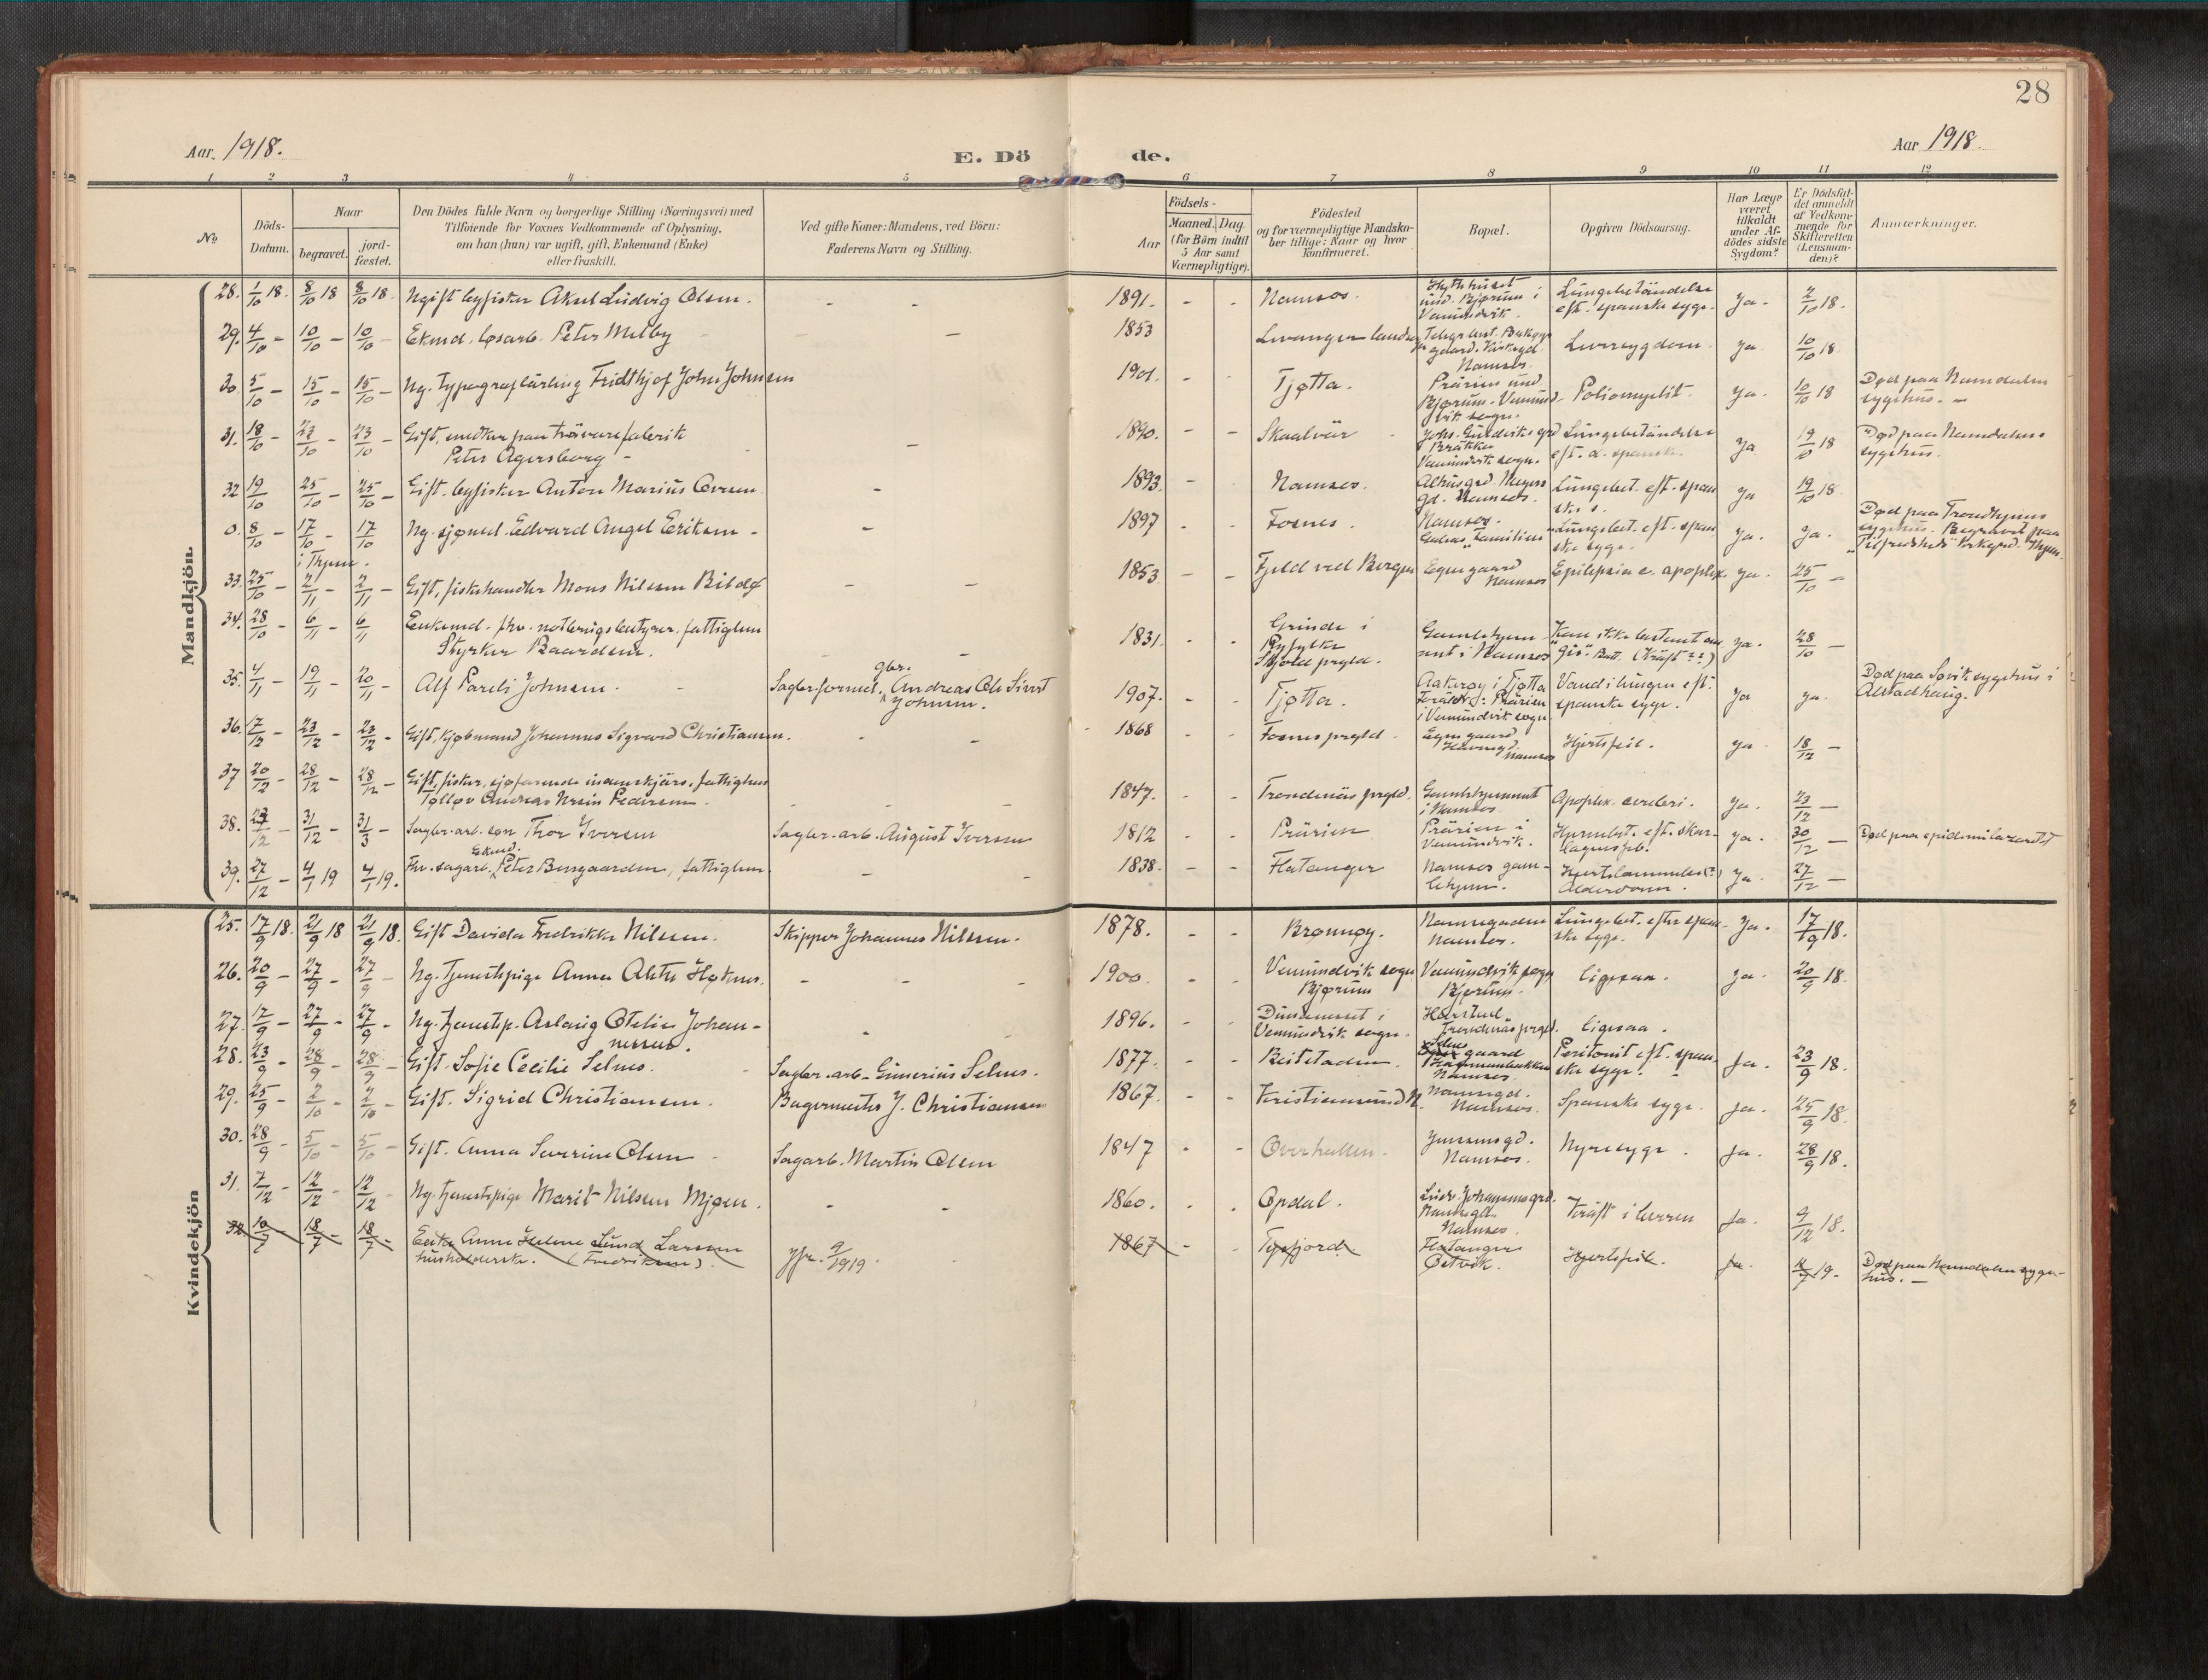 28
Aar 1918.
E. Dö de.
Aar 1918.
1 2 3 4 5 6 7 8 9 10 11 12
No
Döds-Datum.
Naar
begravet.
jord-fæstet.
Den Dödes fulde Navn og borgerlige Stilling (Næringsvei) med
Tilföiende for Voxnes Vedkommende af Oplysning,
om han (hun) var ugift, gift, Enkemand (Enke)
eller fraskilt.
Ved gifte Koner: Mandens, ved Börn:
Faderens Navn og Stilling.
Födsels-
Aar
Maaned. Dag.
(for Börn indtil
5 Aar samt
Værnepligtige).
Födested
og for værnepligtige Mandska-
ber tillige: Naar og hvor
konfirmeret.
Bopæl.
Opgiven Dödsaarsag.
Har Læge
været
tilkaldt
under Af-
dödes sidste
Sygdom?
Er Dödsfal-
det anmeldt
af Vedkom-
mende for
Skifteretten
(Lensman-
den)?
Anmærkninger.
Mandkjön.
28. 1/10 18. 8/10 18 8/10 18. Ugift byfisker Aksel Ludvig Olsen. - - 1891. - - Namsos. und. Bjørum i Vemundvik. Lungebetändelse eft. spanske syge. Ja. 2/10 18.
29. 4/10 - 10/10 - 10/10 - Ekmd. løsarb. Peter Melby - 1853 Levanger landsogn Namsos. Leversygdom. Ja 10/10 18.
30. 5/10 - 15/10 - 15/10 - Ug. typograflärling Fridthjof John Johnsen 1901. - Tjøtta. Prärien und. Bjørum. Vemundvik sogn. Poliomyelit. Ja. 10/10 18 Død paa Namdalens sygehus. -
31. 18/10 - 23/10 - 23/10 - Gift, snedker paa trävarefabrik Peter Agersborg - - 1890. - - Skaalvär Vemundvik sogn. Lungebetändelse eft. d. spanske. Ja 19/10 18 Død paa Namdalens sygehus.
32 19/10 25/10 - 25/10 - Gift. byfisker Anton Marius - 1893. - Namsos. Namsos. Lungebet. eft. spanske s. Ja 19/10 18.
0. 8/10 - 17/10 - 17/10 Ug. sjømd. Edvard Angel Eriksen - - 1897 - - Fosnes. Namsos. "Familien" Lungebet. eft. spanske syge. Ja. Ja. Død paa Trondhjems sygehus. Begravet paa "Tilfredshed" kirkegrd. Thjem.
i Thjem.
33. 25/10 - 2/11 - 2/11 - Gift, fiskehandler Mons Nilsen Bildø - - 1853 - - Fjeld ved Bergen Egen gaard Namsos Epilepsia c. apoplex. Ja. 25/10 -
34. 28/10 - 6/11 - 6/11 Enkemd. fhv. notbrugsbestyrer. fattiglem Styrker Baardsen. - - 1831. - - Grinde i Ryfylke Skjold prgld. Gamlehjemmet i Namsos "Kan ikke bestemt angis". (Kräft??) Ja. 28/10 -
35. 4/11 - 19/11 - 20/11 - Alf Pareli Johnsen. - Sagbr. formd. gbr. Andreas Ole Sivert Johnsen. 1907. - - Tjøtta. i Tjøtta Prärien i Vemundvik sogn Vand i lungen eft. spanske syge. Ja Ja. Død paa Søvik sygehus i Alstadhaug.
36. 17/12 - 23/12 - 23/12 - Gift, kjøbmand Johannes Sigvard Christiansen. - - 1868 - - Fosnes prgld. Egen gaard Havnegd. Namsos Hjertefeil. Ja 18/12 -
37 20/12 - 28/12 - 28/12 - Gift, fisker, sjøfarende indenskjärs. fattiglem Andreas Pedersen. - - 1847. - - Trondenäs prgld. Gamlehjemmet i Namsos. Apoplex. cerebri. Ja. 23/12 -
38. 23/12 - 31/12 - 31/3 - Sagbr. arb. søn Thor Iversen Sagbr. arb. August Iversen 1912 - - Prärien Prärien i Vemundvik. eft. skarlagensfeb. Ja. 30/12 - Død paa epidemilazarett
39. 27/12 - 4/1 19 4/1 19. Ekmd. Fhv. sagarb. Peter Bersgaarden, fattiglem. - - 1838. - - Flatanger Namsos gamlehjem. Hjertelammelse(?) Alderdom. Ja. 27/12 -
Kvindekjön
25. 17/9 18. 21/9 18 21/9 18. Gift Davida Fredrikke Nilssen. Skipper Johannes Nilssen. 1878. - - Brønnøy. Namsegaden Namsos. Lungebet. efter spanske syge. Ja. 17/9 18.
26. 20/9 - 27/9 - 27/9 - Ug. tjenestepige Anna - - - 1900. - - Vemundvik sogn Bjørum Vemundvik sogn Bjørum. ligesaa. Ja. 20/9 18.
27. 17/9 - 27/9 - 27/9 - Ug. tjenestep. Aslaug Otelie Johannessen. - 1896. - - i Vemundvik sogn. Harstad Trondenäs prgd. ligesaa.
28. 23/9 - 28/9 - 28/9 - Gift. Sofie Cecilie Selnes. - Sagbr. arb. Gunerius Selnes. 1877. - - Beitstaden gaard Namsos. Peritonit eft. spanske syge. Ja. 23/9 18.
29. 25/9 - 2/10 - 2/10 - Gift. Sigrid Christiansen. Bagermester J. Christiansen 1867. - - Kristiansund N. Havnegd. Namsos. Spanske syge. Ja. 25/9 18.
30. 28/9 - 5/10 - 5/10 - Gift. Anna Severine Olsen - Sagarb. Martin Olsen 1847 - - Overhallen. Namsos. Nyresyge. Ja. 28/9 18.
31. 7/12 - 12/12 - 12/12 Ug. tjenestepige Marit Nilsen Mjøen. - - 1860. - - Opdal. Ludv. Johansens grd. Namsos. Kräft i leveren Ja. 9/12 18.
32 10/7 18/7 - 18/7 - Enke Anne Helene Lund Larssen husholderske. (Fredriksen). jfr. 9/1919. - 1867 - - Tysfjord. Flatanger Østvik. Hjertefeil. Ja. 11/7 19. Død paa Namdalen sygehus. -